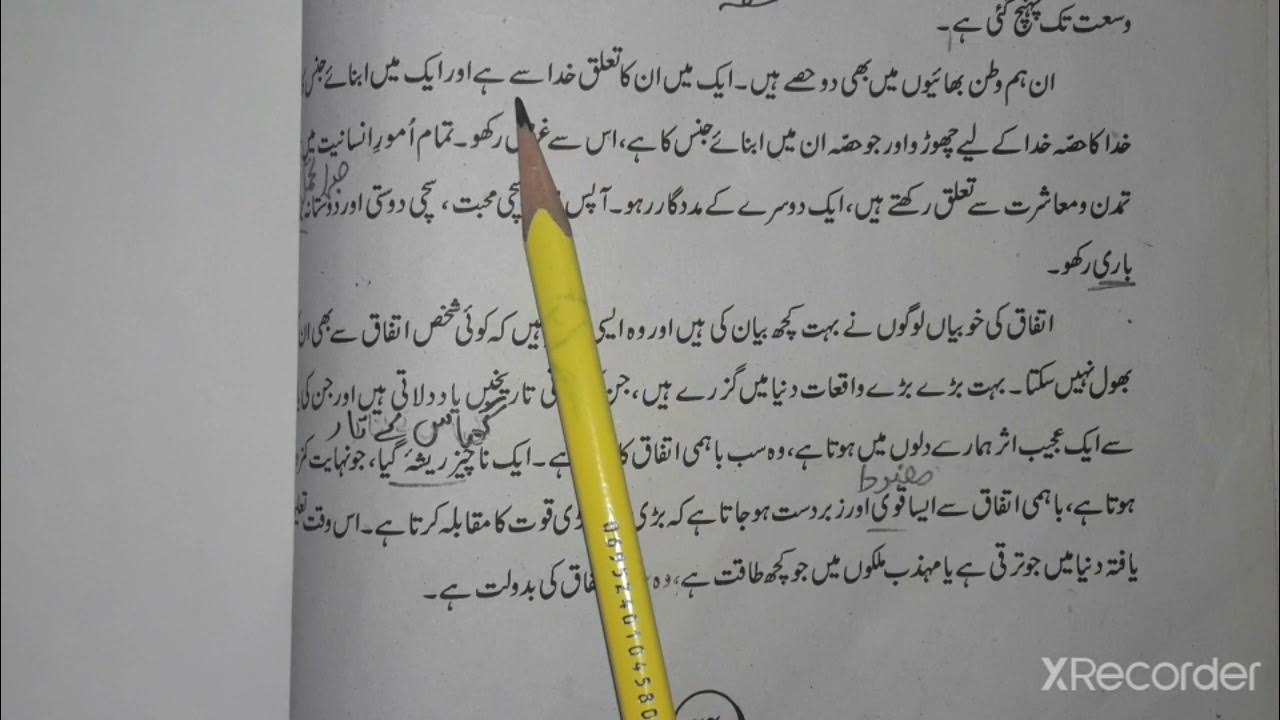 وسعت تک پہنچ گئی ہے۔
ان ہم وطن بھائیوں میں بھی دو حصے ہیں۔ ایک میں ان کا تعلق خدا سے ہے اور ایک میں ابنائے جنس
خدا کا حصّہ خدا کے لیے چھوڑو اور جو حصّہ ان میں ابنائے جنس کا ہے، اس سے رکھو۔ تمام اُمورِ انسانیت میں
تمدن و معاشرت سے تعلق رکھتے ہیں، ایک دوسرے کے مددگار رہو۔ آپس سچی محبت، سچی دوستی اور دوستانہ
باری رکھو۔
اتفاق کی خوبیاں لوگوں نے بہت کچھ بیان کی ہیں اور وہ ایسی ہیں کہ کوئی شخص اتفاق سے بھی ان
بھول نہیں سکتا۔ بہت بڑے بڑے واقعات دنیا میں گزرے ہیں، جن تاریخیں یاد دلاتی ہیں اور جن کی
گھاس کے تار
سے ایک عجیب اثر ہمارے دلوں میں ہوتا ہے، وہ سب باہمی اتفاق کا ہے۔ ایک ناچیز ریشۂ گیا، جو نہایت
مضبوط
ہوتا ہے، باہمی اتفاق سے ایسا قوی اور زبردست ہو جاتا ہے کہ بڑی قوت کا مقابلہ کرتا ہے۔ اس وقت
یافتہ دنیا میں جو ترقی ہے یا مہذب ملکوں میں جو کچھ طاقت ہے، وہ کی بدولت ہے۔
0695240104580
XRecorder